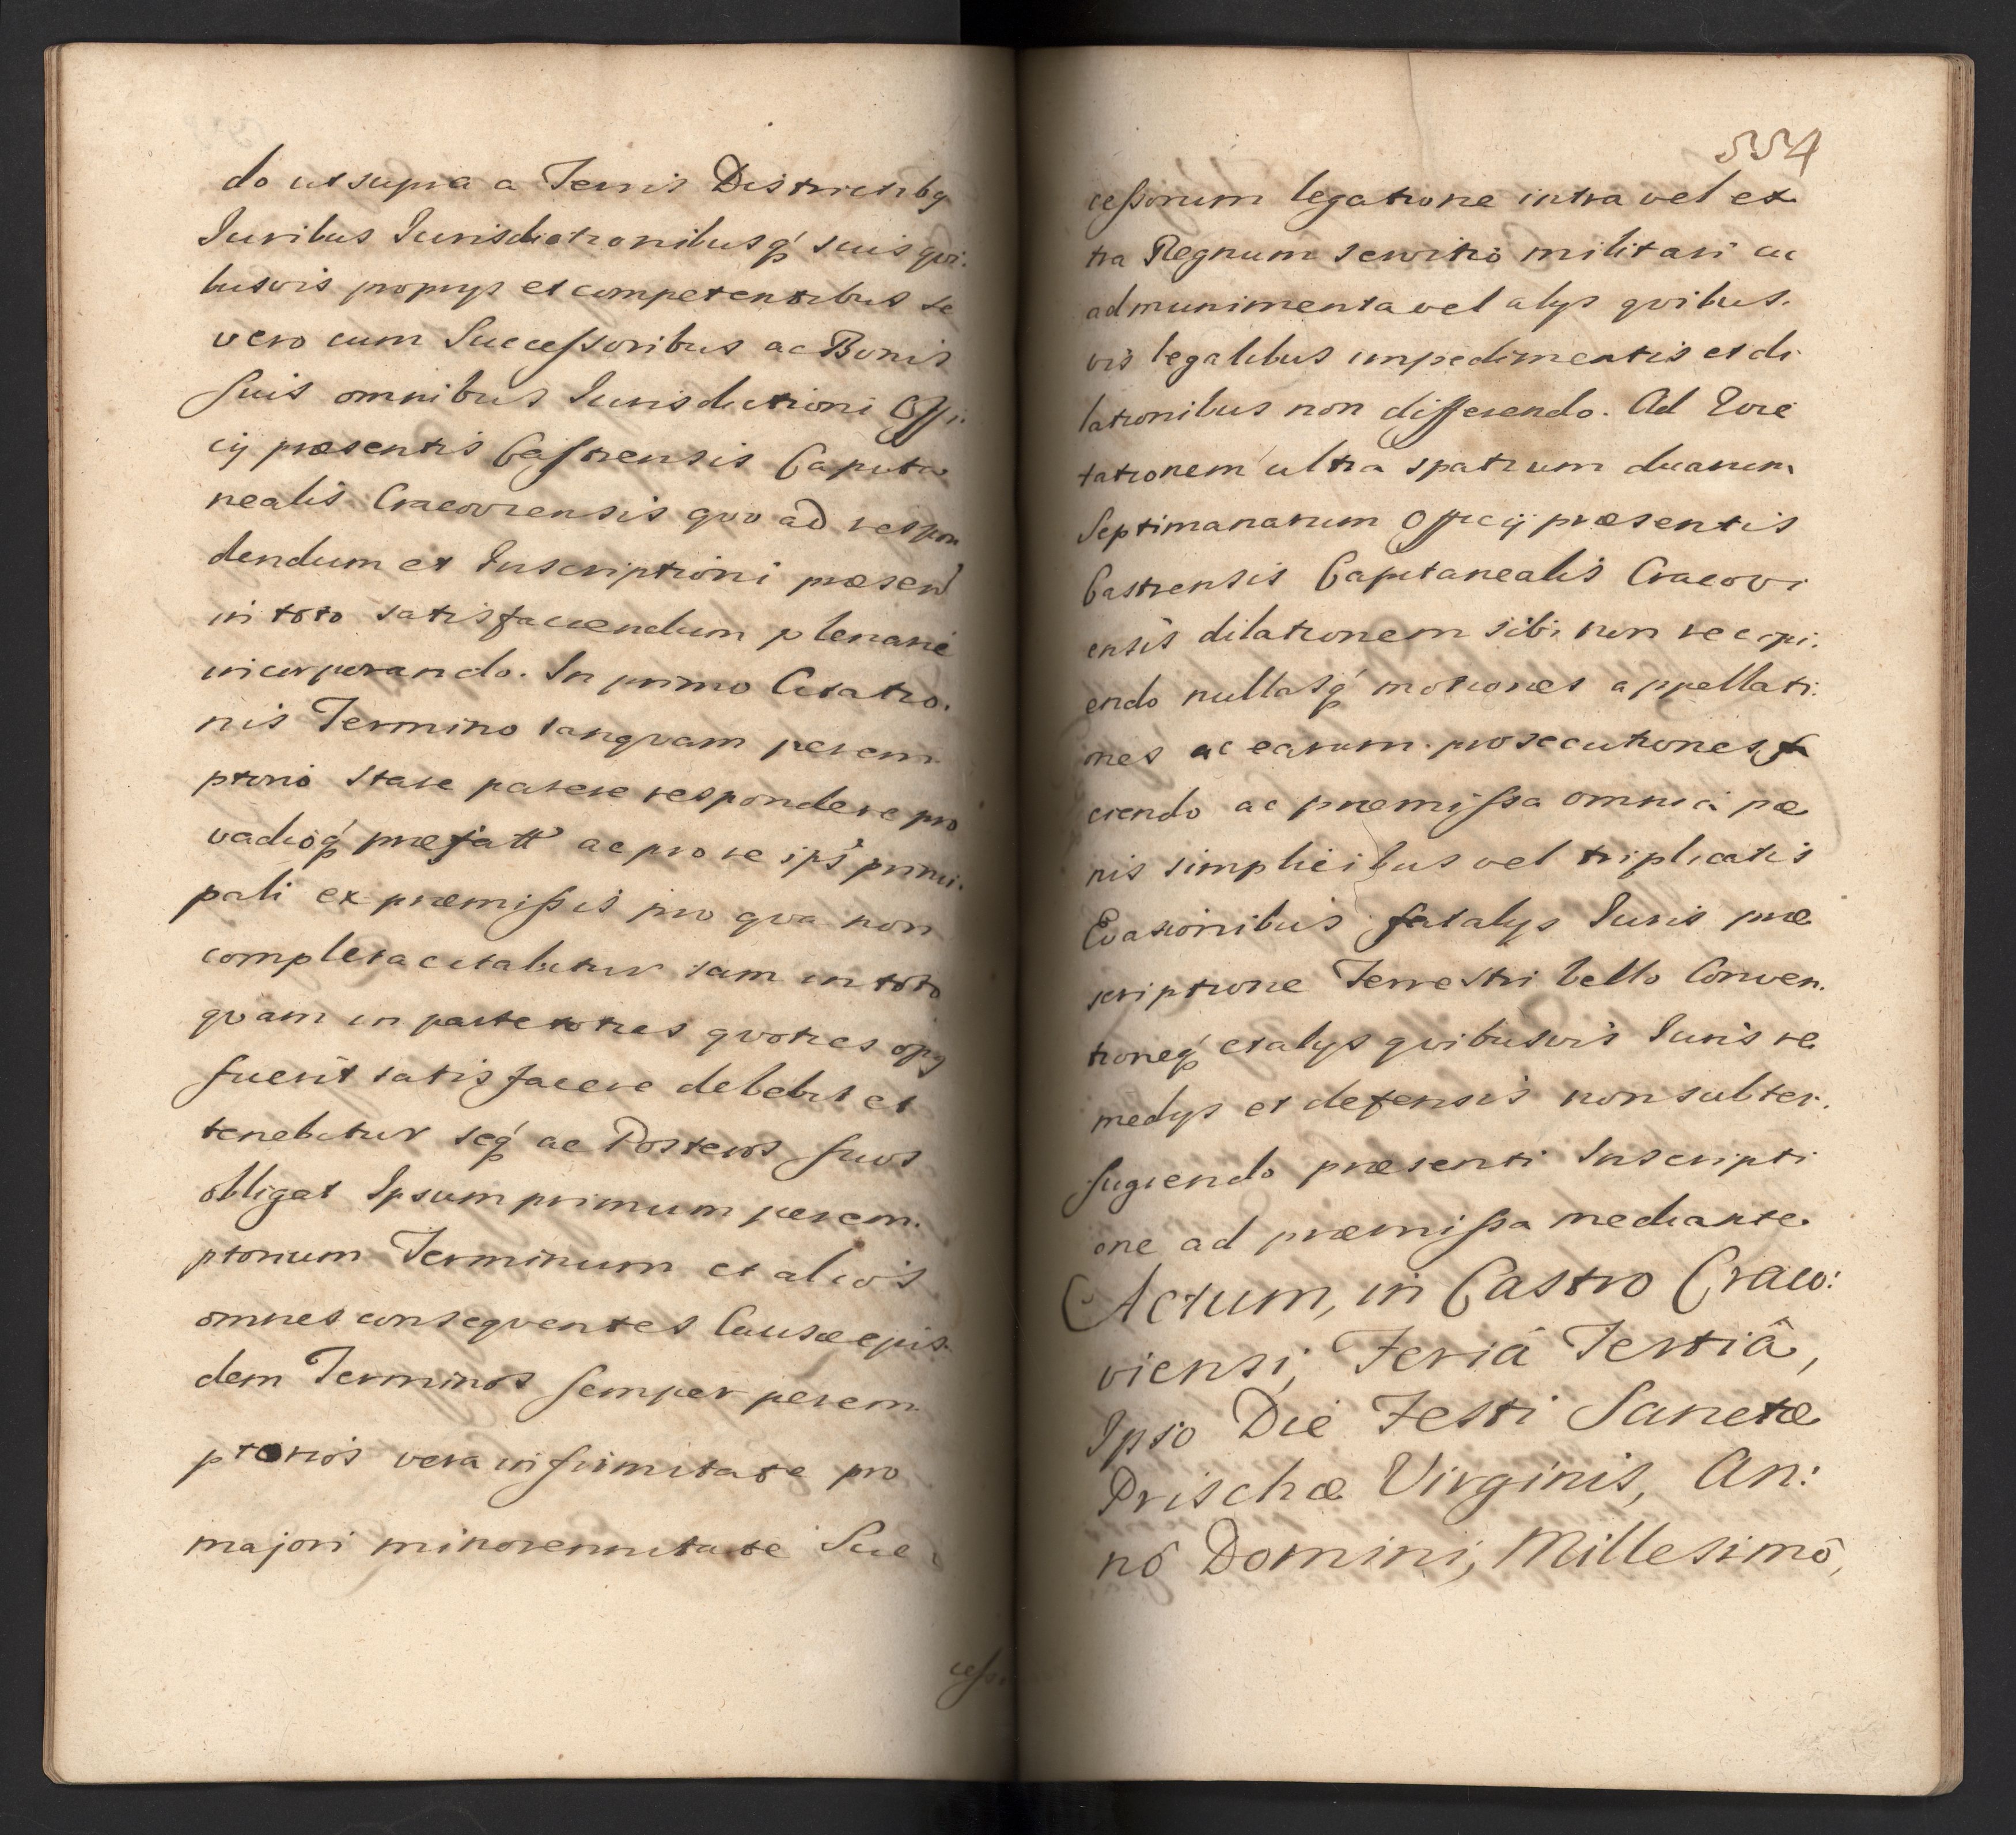 do ut supra a Terris Districtibq
Iuribus Iurisdictionibusq́ suis qvi:
busvis proprys et competentibus se
vero cum Successoribus ac Bonis
suis omnibus Iurisdictioni Offi:
cij præsentis Castrensis Capita
nealis Cracoviensis qvo ad respon
dendum et Inscriptioni præsen
in toto satisfaciendum plenarie
incorporando. In primo Citatio.
nis Termino tanqvam perem
ptorio stare parere respondere pro
vadioq́ præfatt ac pro re ips princi.
pali ex præmissis pro qva non
completa citabitur tam in toto
qvam in parte toties qvoties opq
fuerit satisfacere debebit et
tenebitur seq́ ac Posteros suos
obligat Ipsum primum perem.
ptorium Terminum et alios
omnes conseqventes Causæ ejus
dem Terminos semper perem
ptorios vera infirmitate pro
majori minorennitate Suc
cesso
554
cessorum legatione intra vel ex
tra Regnum servitio militari ac
ad munimenta vel alys qvibus.
vis legalibus impedimentis et di
lationibus non differendo. Ad Evi
tationem ultra spatium duarum
Septimanarum Officij præsentis
Castrensis Capitanealis Cracovi
ensis dilationem sibi non recipi:
endo nullasq́ motiones appellati:
ones ac earum prosecutiones fa
ciendo ac præmissa omnia pæ
nis simplicibus vel triplicatis
Evasionibus fatalys Iuris præ
scriptione Terrestri bello Conven.
tioneq́ et alys qvibusvis Iuris re
medys et defensis non subter.
fugiendo præsenti Inscripti
one ad præmissa mediante
Actum, in Castro Craco:
viensi, Feriâ Tertiâ,
Ipso Die Festi Sanctæ
Prischæ Virginis, An:
nô Domini, Millesimô,